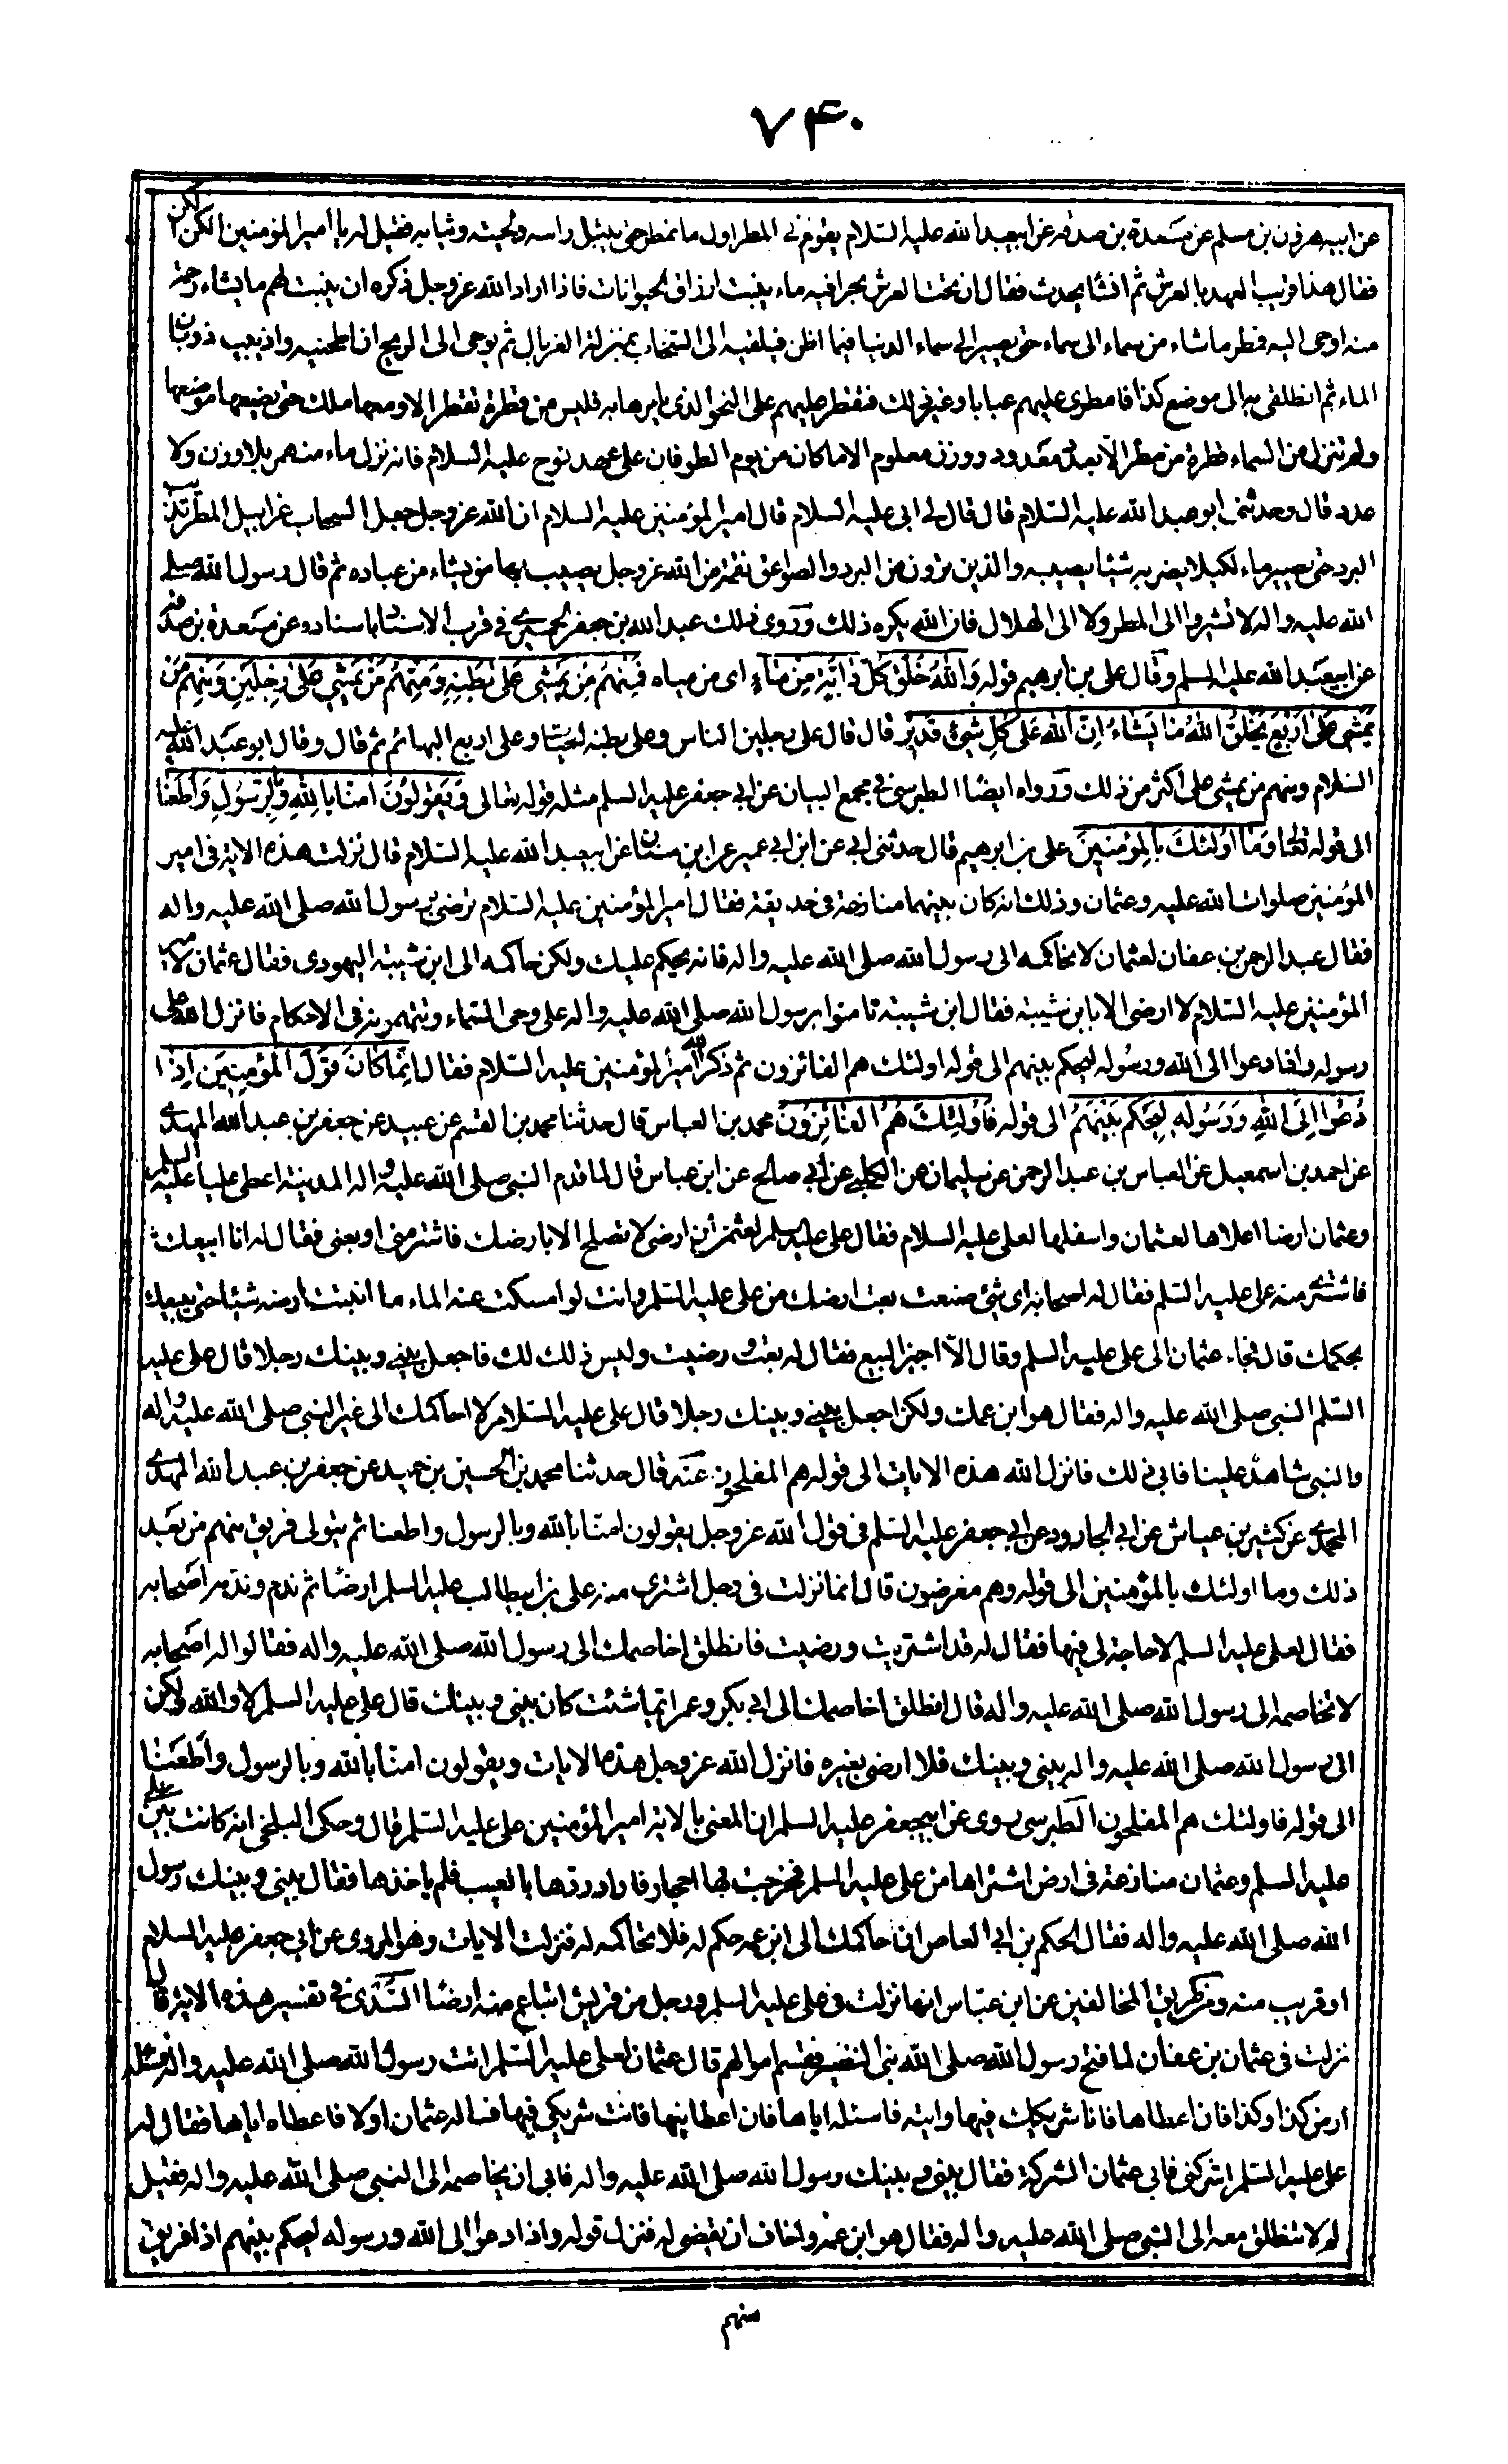 ٧۴٠
عن ابيه هرون بن مسلم عن مسعدة بن صدقه عن ابيعبد الله عليه السلام يقوم في المطر اول ما تمطر حتى يبتل راسه ولحيته وثيابه فقيل له يا امير المؤمنين الكن الكن
فقال هذا قريب العهد بالعرش ثم انشا يحدث فقال ان تحت العرش بحرا فيه ماء ينبت ارزاق الحيوانات فاذا اراد الله عز وجل ذكره ان ينبت لهم ما يشاء رحمة
منه اوحى اليه فمطر ما شاء من سماء الى سماء حتى يصير الى سماء الدنيا فيما اظن فيلقيه الى السحاب بمنزلة الغربال ثم يوحى الى الريح ان اطحنيه واذيبيه ذوبان
الماء ثم انطلقى به الى موضع كذا فامطرى عليهم عبابا وغير ذلك فتقطر عليهم على النحو الذى يامرها به فليس من قطرة تقطر الا ومعها ملك حتى يضعها موضعها
ولم تنزل من السماء قطرة من مطر الا بعدد معدود ووزن معلوم الا ما كان من يوم الطوفان على عهد نوح عليه السلام فانه نزل ماء منهمر بلا وزن ولا
عدد قال وحدثنى ابو عبد الله عليه السلام قال قال لى ابى عليه السلام قال امير المؤمنين عليه السلام ان الله عز وجل جعل السحاب غرابيل المطر تذيب
البرد حتى يصير ماء لكيلا يضر به شيئا يصيبه والذين ترون من البرد والصواعق نقمة من الله عز وجل يصيب بها من يشاء من عباده ثم قال رسول الله صلى
الله عليه واله لا تشيروا الى المطر ولا الى الهلال فان الله يكره ذلك وروى ذلك عبد الله بن جعفر الحميرى في قرب الاسناد باسناده عن مسعدة بن صدقه
عن ابيعبد الله عليه السلم وقال على بن ابرهيم قوله وَاللهُ خَلَقَ كُلَّ دَابَّةٍ مِنْ مَاءٍ اى من مياه فَمِنْهُمْ مَنْ يَمْشِي عَلَى بَطْنِهِ وَمِنْهُمْ مَنْ يَمْشِي عَلَى رِجْلَيْنِ وَمِنْهُمْ مَنْ
يَمْشِي عَلَى أَرْبَعٍ يَخْلُقُ اللهُ مَا يَشَاءُ اِنَّ اللهَ عَلَى كُلِّ شَيْءٍ قَدِيرٌ قال قال على رجلين الناس وعلى بطنه الحيات وعلى اربع البهائم ثم قال وقال ابو عبد الله عليه
السلام ومنهم من يمشى على اكثر من ذلك ورواه ايضًا الطبرسى في مجمع البيان عن ابى جعفر عليه السلم مثله قوله تعالى وَيَقُولُونَ امَنَّا بِاللهِ وَبِالرَّسُولِ وَأَطَعْنَا
الى قوله تعالى وَمَا اُولئِكَ بِالْمُؤْمِنِينَ على بن ابرهيم قال حدثنى ابى عن ابن ابى عمير عن ابن سنان عن ابيعبد الله عليه السلام قال نزلت هذه الاية في امير
المؤمنين صلوات الله عليه وعثمان وذلك انه كان بينهما منازعة في حديقة فقال امير المؤمنين عليه السلام ترضى برسول الله صلى الله عليه واله
فقال عبد الرحمن بن عفان لعثمان لا تحاكمه الى رسول الله صلى الله عليه واله فانه يحكم عليك ولكن حاكمه الى ابن شيبة اليهودى فقال عثمان لامير
المؤمنين عليه السلام لا ارضى الا بابن شيبة فقال ابن شيبة تامنوا برسول الله صلى الله عليه واله على وحى السماء وتتهمونه في الاحكام فانزل الله على
رسوله واذا دعوا الى الله ورسوله ليحكم بينهم الى قوله اولئك هم الفائزون ثم ذكر الله امير المؤمنين عليه السلام فقال اِنَّمَا كَانَ قَوْلَ الْمُؤْمِنِينَ اِذَا
دُعُوا اِلَى اللهِ وَرَسُولِهِ لِيَحْكُمَ بَيْنَهُمْ الى قوله فَاُولئِكَ هُمُ الْفَائِزُونَ محمد بن العباس قال حدثنا محمد بن القسم عن عبيد عن جعفر بن عبد الله المحمدى
عن احمد بن اسمعيل عن العباس بن عبد الرحمن عن سليمان عن الكلبى عن ابى صالح عن ابن عباس قال لما قدم النبى صلى الله عليه واله المدينة اعطى عليا عليه السلم
وعثمان ارضا اعلاها لعثمان واسفلها لعلى عليه السلام فقال على عليه السلم لعثمن ان ارضى لا تصلح الا بارضك فاشتر منى او بعنى فقال له انا ابيعك
فاشترى منه على عليه السلم فقال له اصحابه اى شئ صنعت بعت ارضك من على عليه السلم وانت لو امسكت عنه الماء ما انبتت ارضه شيئا حتى يبيعك
بحكمك قال فجاء عثمان الى على عليه السلم وقال لا اجيز البيع فقال له بعت ورضيت وليس ذلك لك فاجعل بينى وبينك رجلا قال على عليه
السلم النبى صلى الله عليه واله فقال هو ابن عمك ولكن اجعل بينى وبينك رجلا قال على عليه السلام لا احاكمك الى غير النبى صلى الله عليه واله
والنبى شاهد علينا فابى ذلك فانزل الله هذه الايات الى قوله هم المفلحون عنه قال حدثنا محمد بن الحسين بن حميد عن جعفر بن عبد الله المحمدى
المحمدى عن كثير بن عياش عن ابى الجارود عن ابى جعفر عليه السلم في قول الله عز وجل يقولون امنا بالله وبالرسول واطعنا ثم يتولى فريق منهم من بعد
ذلك وما اولئك بالمؤمنين الى قوله وهم معرضون قال انما نزلت في رجل اشترى من على بن ابيطالب عليه السلم ارضا ثم ندم وندمه اصحابه
فقال لعلى عليه السلم لا حاجة لى فيها فقال له قد اشتريت ورضيت فانطلق اخاصمك الى رسول الله صلى الله عليه واله فقالوا له اصحابه
لا تخاصمه الى رسول الله صلى الله عليه واله قال انطلق اخاصمك الى ابى بكر وعمر ايهما شئت كان بينى وبينك قال على عليه السلم لا والله ولكن
الى رسول الله صلى الله عليه واله بينى وبينك فلا ارضى بغيره فانزل الله عز وجل هذه الايات ويقولون امنا بالله وبالرسول واطعنا
الى قوله فاولئك هم المفلحون الطبرسى روى عن ابيجعفر عليه السلم ان المعنى بالاية امير المؤمنين على عليه السلم قال وحكى البلخى انه كانت بين على
عليه السلم وعثمان منازعة في ارض اشتراها من على عليه السلم فخرجت بها احجار فاراد ردها بالعيب فلم ياخذها فقال بينى وبينك رسول
الله صلى الله عليه واله فقال الحكم بن ابى العاص ان حاكمك الى ابن عمه حكم له فلا تحاكمه له فنزلت الايات وهو المروى عن ابى جعفر عليه السلام
او قريب منه ومن طريق المخالفين عن ابن عباس انها نزلت في على عليه السلم ورجل من قريش ابتاع منه ارضا السدى في تفسير هذه الاية قال
نزلت في عثمان بن عفان لما فتح رسول الله صلى الله بنى النضير فقسم اموالهم قال عثمان لعلى عليه السلم ائت رسول الله صلى الله عليه واله فسئله
ارض كذا وكذا فان اعطاها فانا شريكك فيها وايته فاسئله اياها فان اعطانيها فانت شريكى فيها فساله عثمان اولا فاعطاه اياها فقال له
على عليه السلم اشركنى فابى عثمان الشركة فقال بينى وبينك رسول الله صلى الله عليه واله فابى ان يخاصمه الى النبى صلى الله عليه واله فقيل
له لا تنطلق معه الى النبى صلى الله عليه واله فقال هو ابن عمه واخاف ان يقضى له فنزل قوله واذا دعوا الى الله ورسوله ليحكم بينهم اذا فريق
منهم